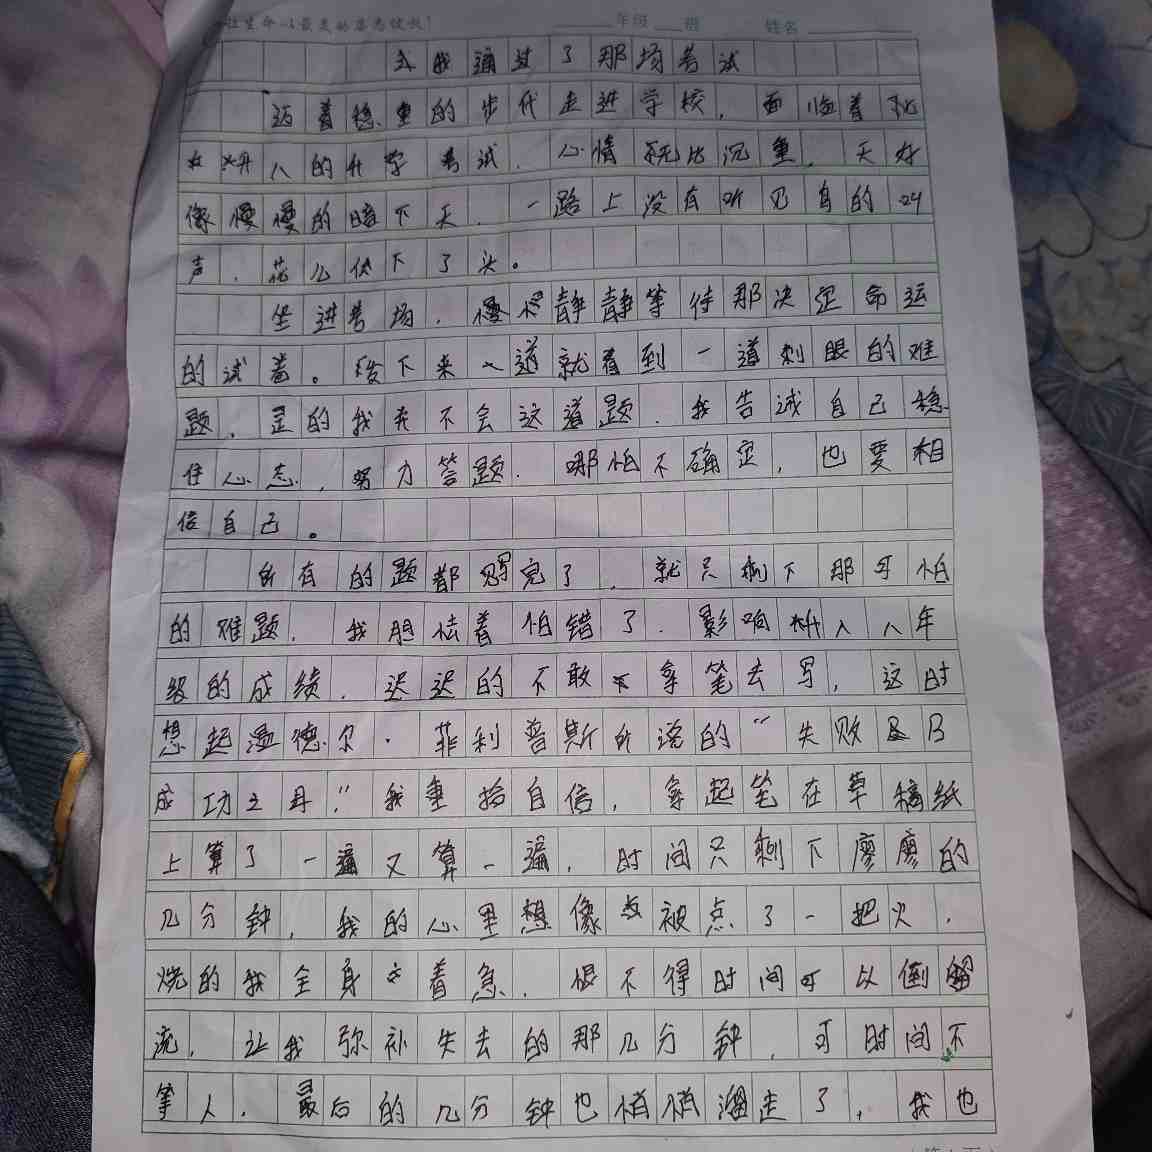 让生命以最美的姿态绽放！ ____年级 __班 姓名________
我通过了那场考试
迈着稳重的步代走进学校，面临着
的升学考试，心情无比沉重，天好
像慢慢的暗下天，一路上没有听见鸟的叫
声，花儿伏下了头。
坐进考场，慢慢静静等待那决定命运
的试着。发下来一道就看到一道刺眼的难
题，是的我并不会这道题，我告诫自己稳
住心态，努力答题，哪怕不确定，也要相
信自己。
所有的题都写完了，就只剩下那可怕
的难题，我胆怯着怕错了，影响升入八年
级的成绩，迟迟的不敢拿笔去写，这时
想起温德尔·菲利普斯所说的“失败是
成功之母”！我重拾自信，拿起笔在草稿纸
上算了一遍又算一遍，时间只剩下廖廖的
几分钟，我的心里想像被点了一把火，
烧的我全身着急，恨不得时间可以倒
流，让我弥补失去的那几分钟，可时间不
等人，最后的几分钟也悄悄溜走了，我也